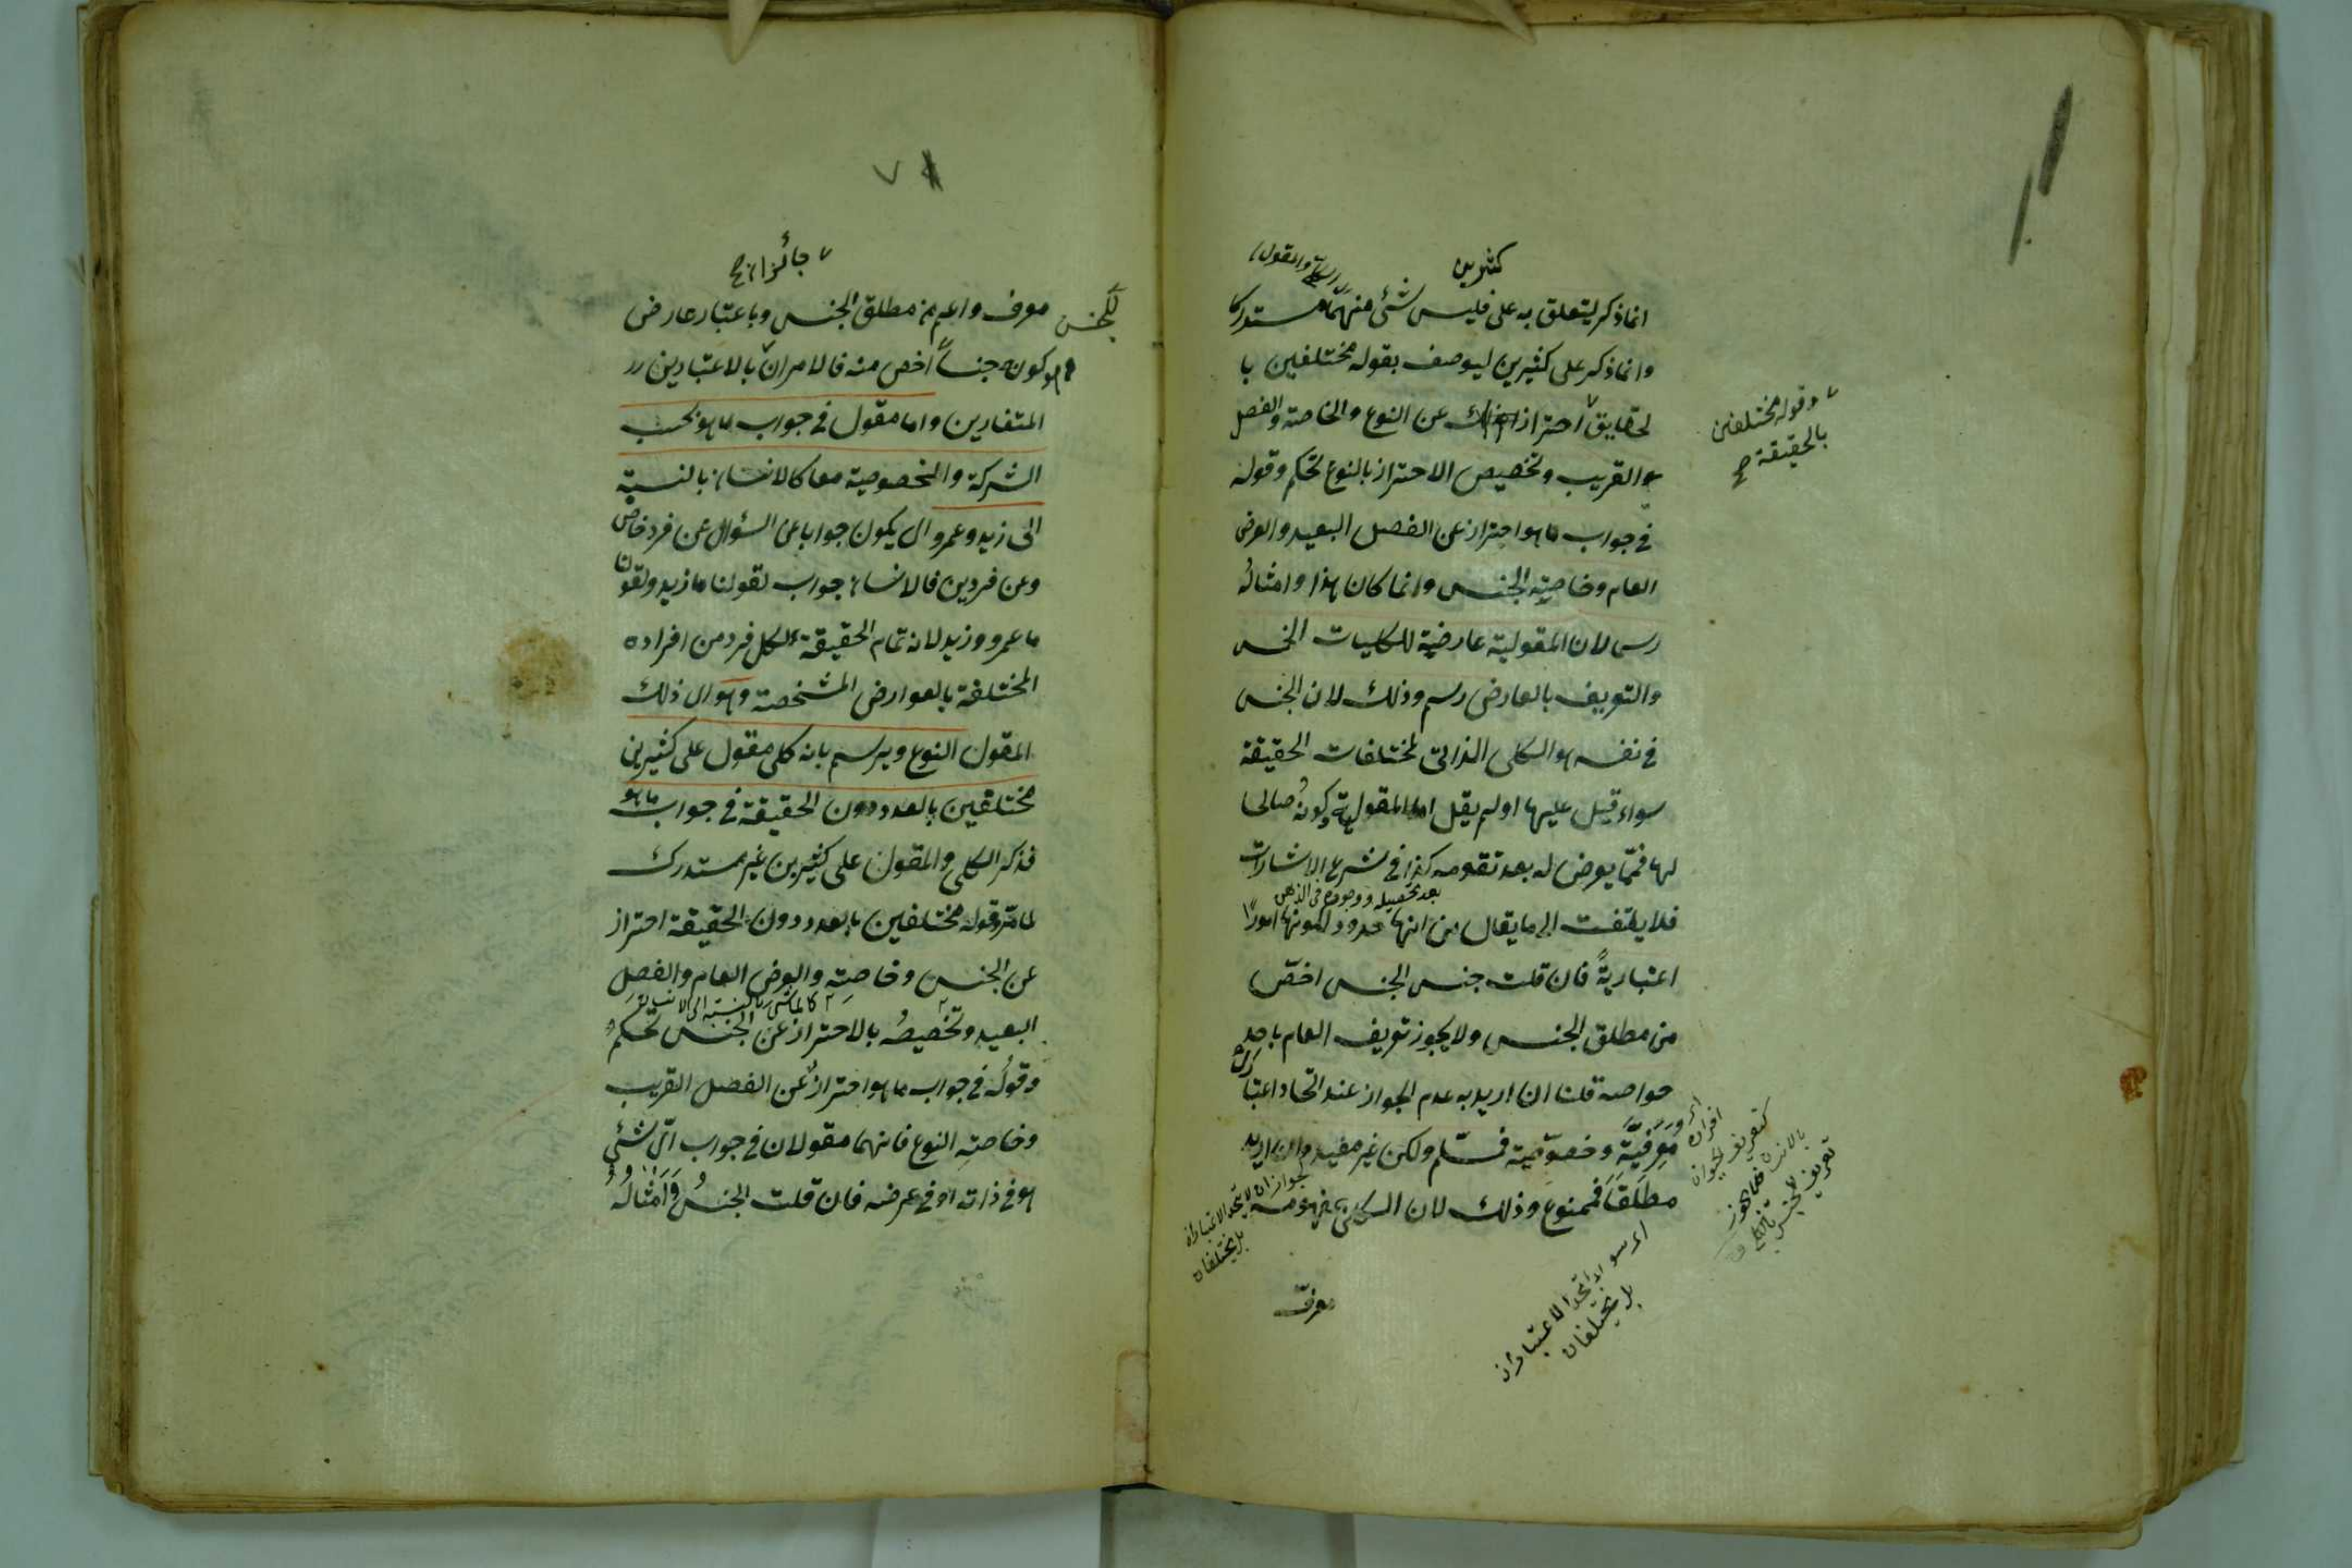 كثيرين
انما ذكر ليتعلق به على فليس شئ منهما مستدركا
وانما ذكر على كثيرين ليوصف بقوله مختلفين با
لحقايق احتراز عن النوع والخاصة والفصل
والقريب وتخصيص الاحتراز بالنوع تحكم وقوله
في جواب ما هو احتراز عن الفصل البعيد والعرض
العام وخاصية الجنس وانما كان هذا وامثاله
رسما لان المقولية عارضية للكليات الخمس
والتعريف بالعارض رسم وذلك لان الجنس
في نفسه هو الكلى الذاتى لمختلفات الحقيقة
سواء قيل عليها او لم يقل اما المقولية وكونه صالحا
لها فممّا يعرض له بعد تقومه كذا في شرح الاشارات
بعد تحصيله ووجوده في الذهن
فلا يلتفت الى ما يقال من انها حدود لكونها امورًا
اعتباريةً فان قلت جنس الجنس اخصّ
من مطلق الجنس ولا يجوز تعريف العام باحد
خواصه قلنا ان اريد به عدم الجواز عند اتحاد اعتبا
معرفيّة وخصوصية فمسلّم ولكن غير مفيد وان اريد
مطلقًا فممنوع وذلك لان الكلى بمفهومه
معرف
وقوله مختلفين
بالحقيقة صح
لجواز ان لا يتحد الاعتباران
بل يختلفان
اى سواء اتحدا الاعتباران
بل يختلفان
كتعريف الحيوان
بالانسان فلا يجوز
تعريف الجنس
جائزان صح
للجنس
معرف واعم من مطلق الجنس وباعتبار عارض
هو كونه جنساً اخص منه فالامران بالاعتبارين
المتغايرين واما مقول في جواب ما هو بحسب
الشركة والخصوصية معا كالانسان بالنسبة
الى زيد وعمرو اى يكون جوابا عن السؤال عن فرد خاص
وعن فردين فالانسان جواب لقولنا ما زيد ولقولنا
ما عمرو وزيد لانه تمام الحقيقة لكل فرد من افراده
المختلفة بالعوارض المشخصة وهو اى ذلك
المقول النوع ويرسم بانه كلى مقول على كثيرين
مختلفين بالعدد دون الحقيقة في جواب ما هو
فذكر الكلى والمقول على كثيرين غير مستدرك
لما مر وقوله مختلفين بالعدد دون الحقيقة احتراز
عن الجنس وخاصته والعرض العام والفصل
كالماشى بالنسبة الى الانسان
البعيد وتخصيصُه بالاحتراز عن الجنس تحكم
وقولُه في جواب ما هو احترازٌ عن الفصل القريب
وخاصةِ النوع فانهما مقولان في جواب اىّ شئ
هو في ذاته او في عرضه فان قلت الجنسُ وَامثالُه